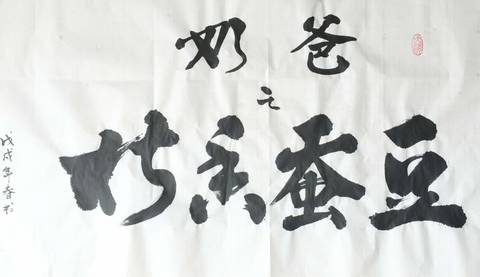 奶爸
之
香蚕豆
戊戌年春